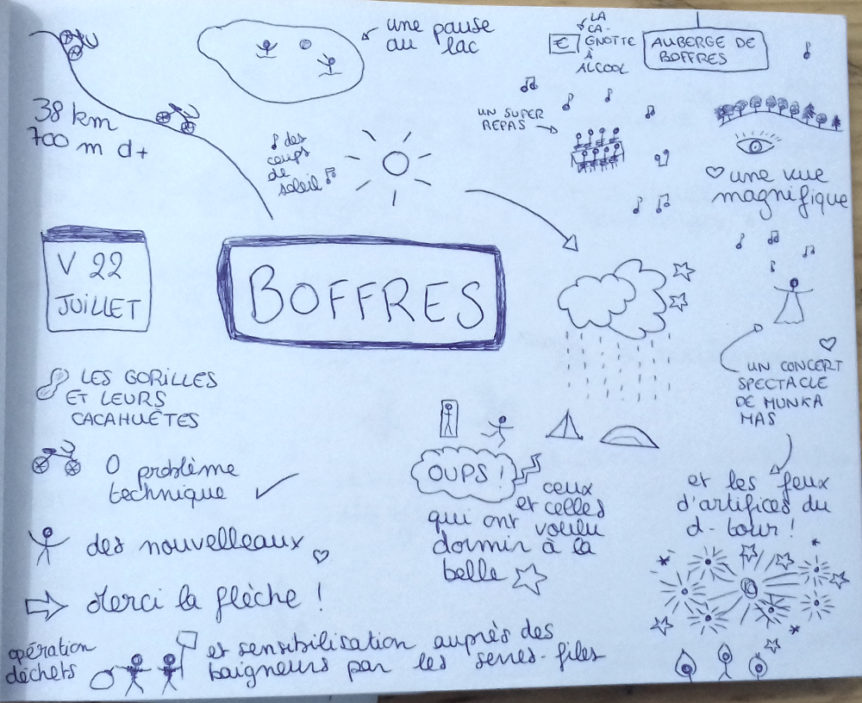 38 km
700 m d+
une pause
au lac
LA
CA-
GNOTTE
À
ALCOOL
€
AUBERGE DE
BOFFRES
UN SUPER
REPAS
des
coups
de
soleil
♡ une vue
magnifique
V 22
JUILLET
BOFFRES
UN CONCERT
SPECTACLE
DE MUNKA
MAS
LES GORILLES
ET LEURS
CACAHUÈTES
0 problème
technique
des nouvelleaux
Merci la flèche !
opération
déchets
et sensibilisation auprès des
baigneurs par les serres-files
OUPS !
ceux
et celles
qui ont voulu
dormir à la
belle
et les feux
d'artifices du
d-tour !